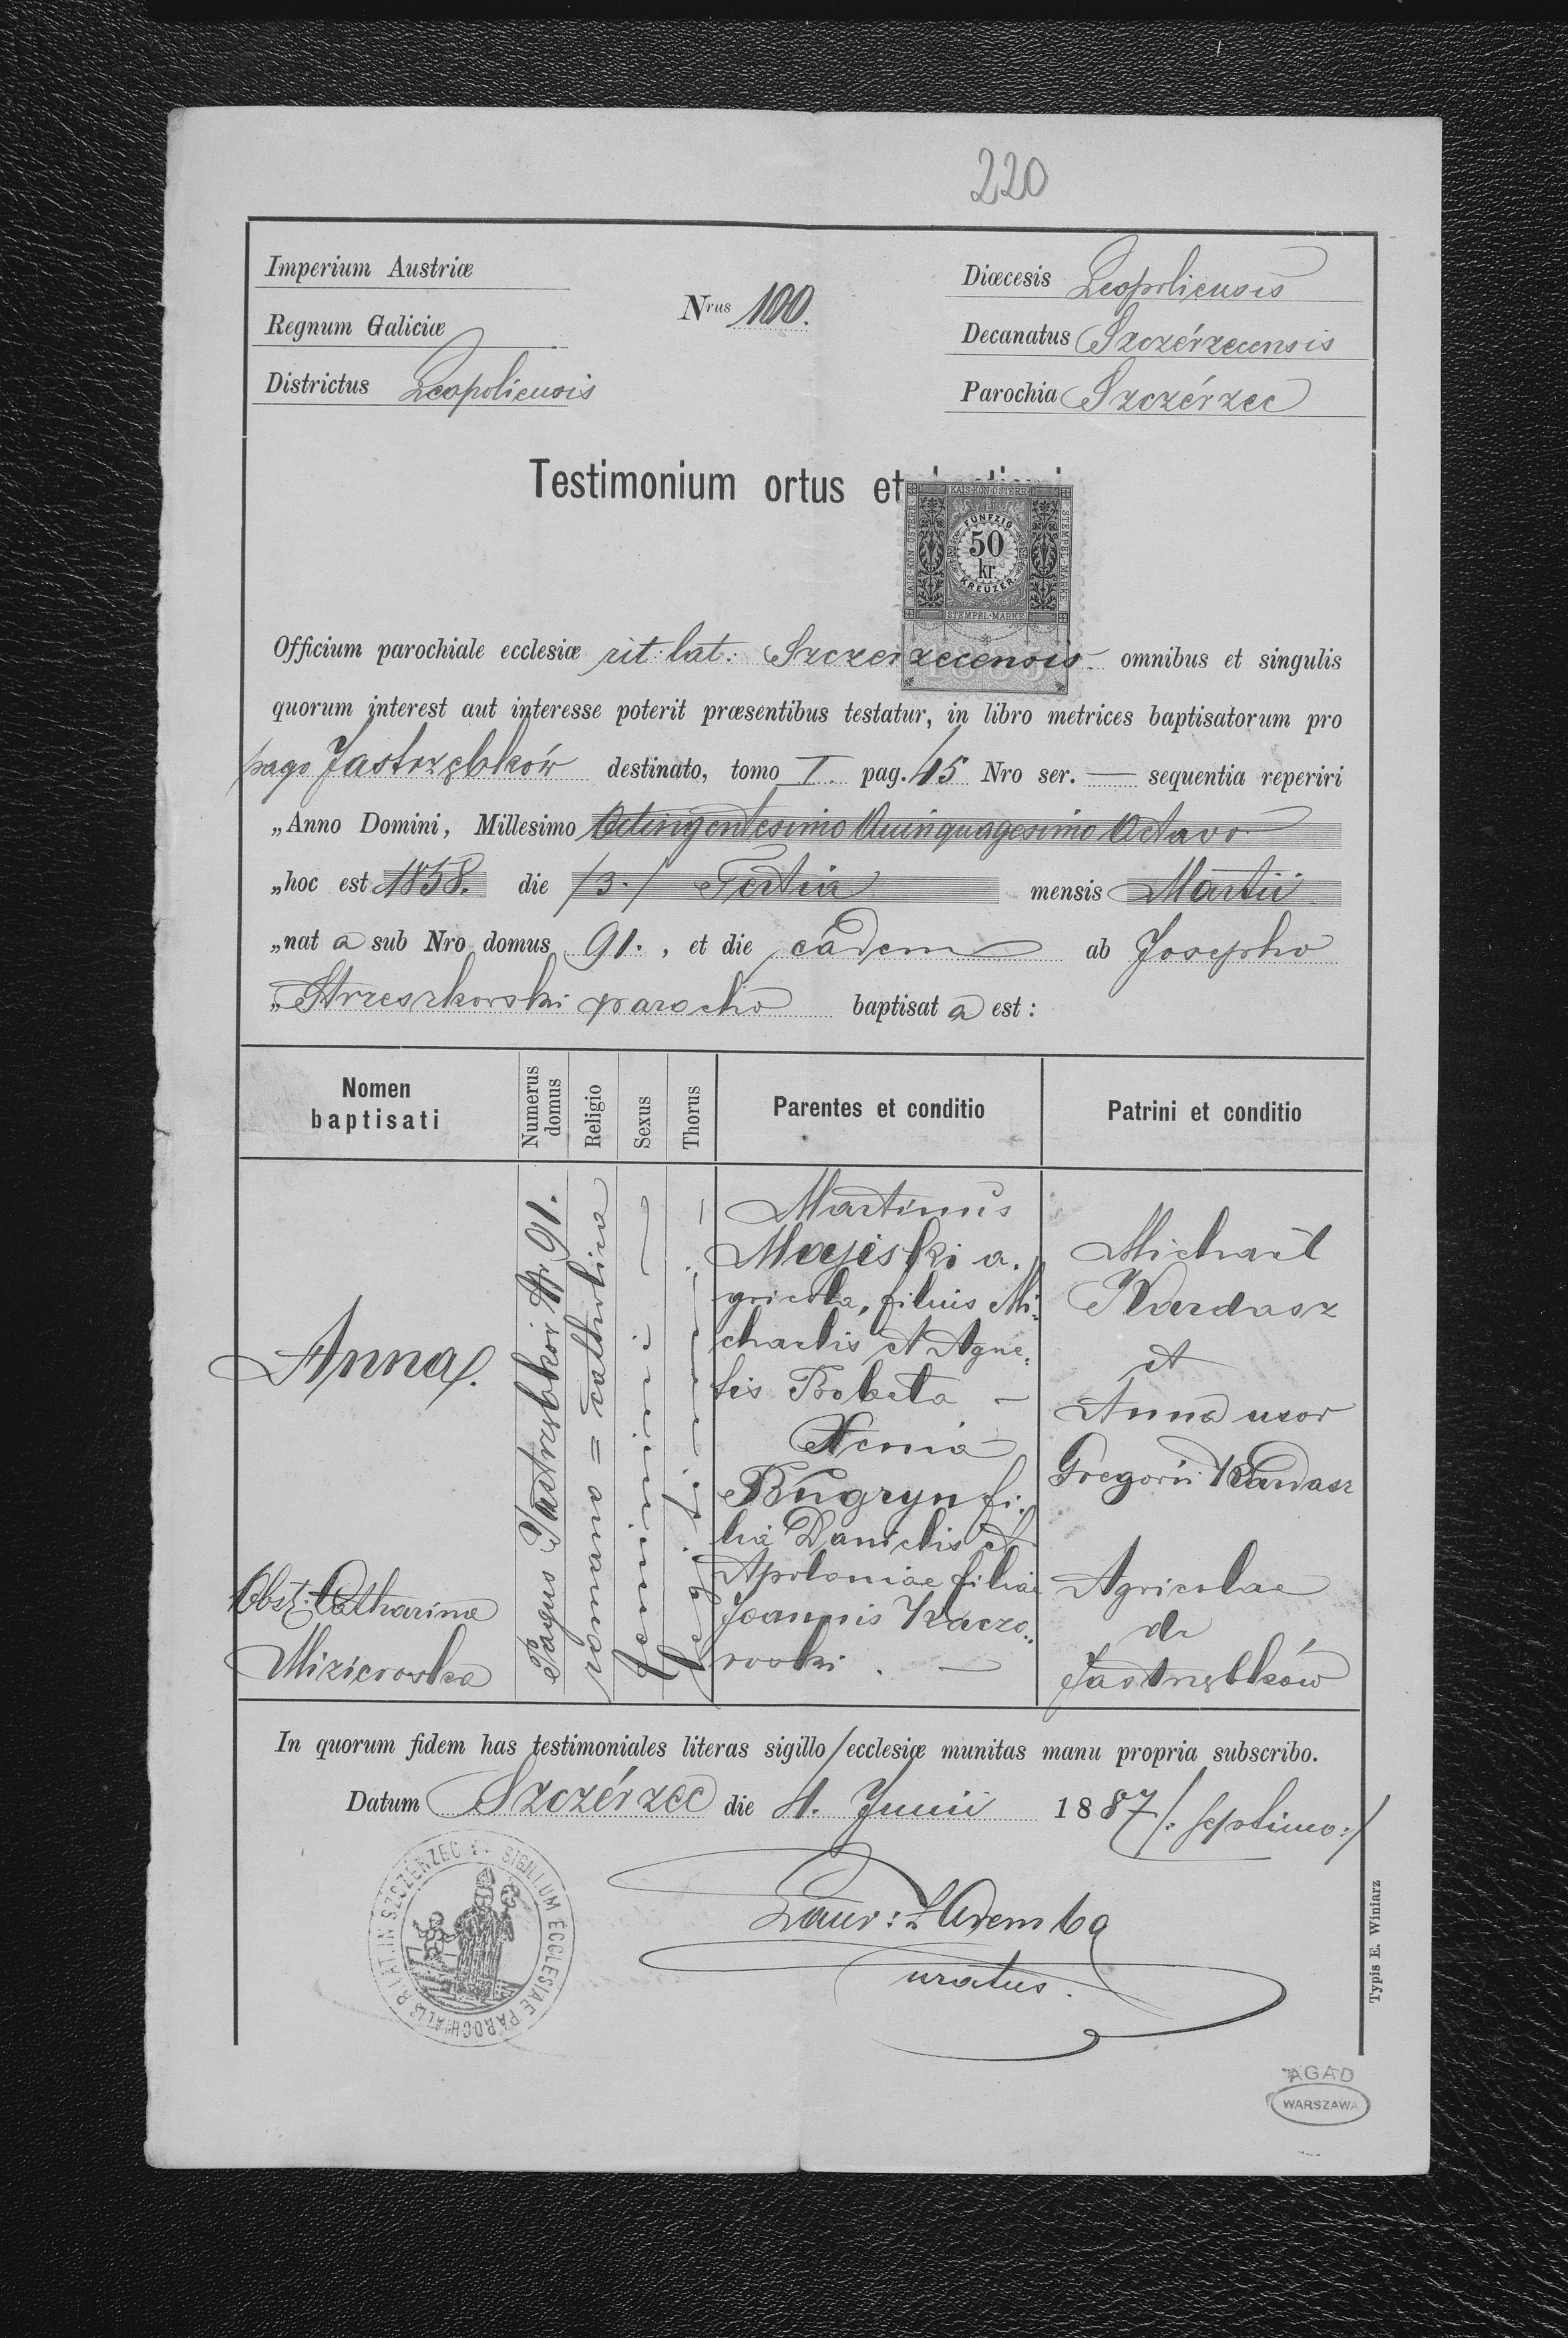 220
Imperium Austriæ
Regnum Galiciæ
Districtus Leopoliensis
Nrus 100.
Diœcesis Leopoliensis
Decanatus Szczérzecensis
Parochia Szczérzec
Testimonium ortus et
KAIS. KÖN. ÖSTERR.
STEMPEL-MARKE
FÜNFZIG
50
kr.
KREUZER
STEMPEL-MARKE
Officium parochiale ecclesiæ rit: lat: Szczerzecensis omnibus et singulis
quorum interest aut interesse poterit præsentibus testatur, in libro metrices baptisatorum pro
pago Jastrzębków destinato, tomo I. pag. 45 Nro ser. — sequentia reperiri
„Anno Domini, Millesimo Octingentesimo Quinquagesimo Octavo
„hoc est 1858. die /3./ Tertia mensis Martii
„nat a sub Nro domus 91. , et die eadem ab Josepho
„Strzeszkowski parocho baptisat a est :
Nomen
baptisati
Numerus
domus
Religio
Sexus
Thorus
Parentes et conditio
Patrini et conditio
Anna.
Obst: Catharina
Mizierowska
Pagus Jastrzębków Nr 91.
romano = catholica
feminini
legitimi
Martinus
Majiski a.
gricola, filius Mi.
chaelis et Agne.
tis Bobeta —
Xenia
Bugryn fi.
lia Danielis et
Apoloniae filiae
Joannis Kaczo..
rowski . —
Michael
Kardasz
et
Anna uxor
Gregorii Kardasz
Agricolae
de
Jastrzębków
In quorum fidem has testimoniales literas sigillo ecclesiæ munitas manu propria subscribo.
Datum Szczérzec die 4. Junii 1887 /: septimo :/
SIGILLUM ECCLESIAE PAROCHIALIS R. LAT. IN SZCZERZEC
Laur:
Curatus.
Typis E. Winiarz
AGAD
WARSZAWA